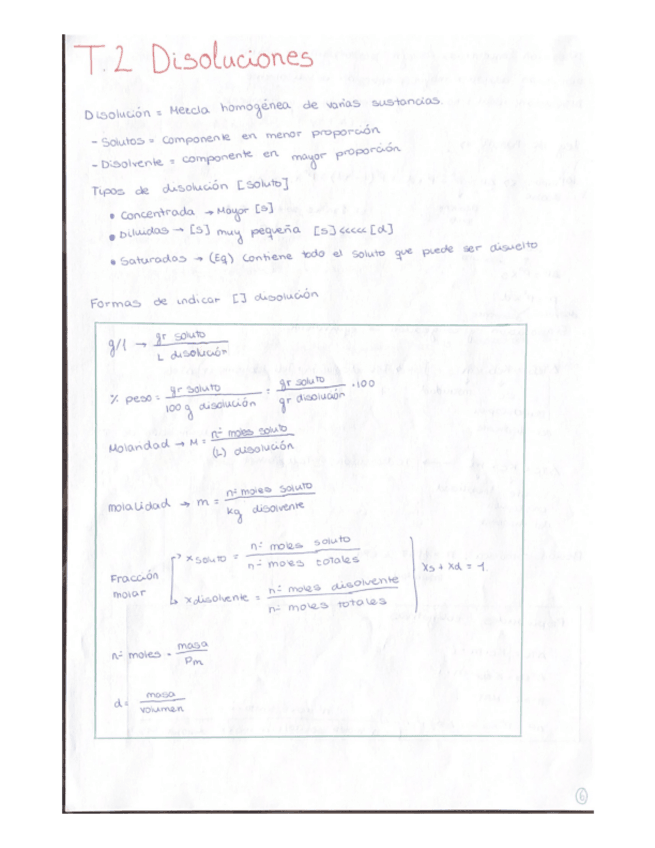 T.2 Disoluciones
Disolución = Mezcla homogénea de varias sustancias.
- Solutos = componente en menor proporción
- Disolvente = componente en mayor proporción
Tipos de disolución [soluto]
• Concentrada → Mayor [s]
• Diluidas → [s] muy pequeña [s] <<<<< [d]
• Saturadas → (Eq) Contiene todo el soluto que puede ser disuelto
Formas de indicar [] disolución
g/l → gr soluto / L disolución
% peso = gr soluto / 100 g disolución = gr soluto / gr disolución · 100
Molaridad → M = nº moles soluto / (L) disolución
molalidad → m = nº moles soluto / kg disolvente
Fracción molar
x soluto = nº moles soluto / nº moles totales
x disolvente = nº moles disolvente / nº moles totales
Xs + Xd = 1
nº moles = masa / Pm
d = masa / volumen
6